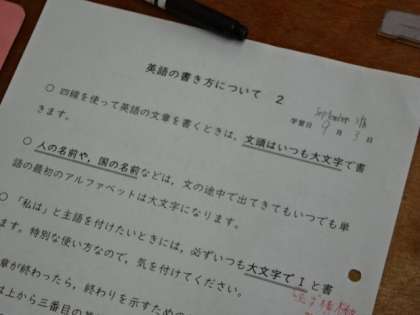 英語の書き方について 2
September
学習日 9 月 3 日
○ 四線を使って英語の文章を書くときは、文頭はいつも大文字で書
きます。
○ 人の名前や，国の名前などは、文の途中で出てきてもいつでも単
語の最初のアルファベットは大文字になります。
○ 「私は」と主語を付けたいときには、必ずいつも大文字で I と書
ます。特別な使い方なので、気を付けてください。
章が終わったら，終わりを示すための
は上から三番目の